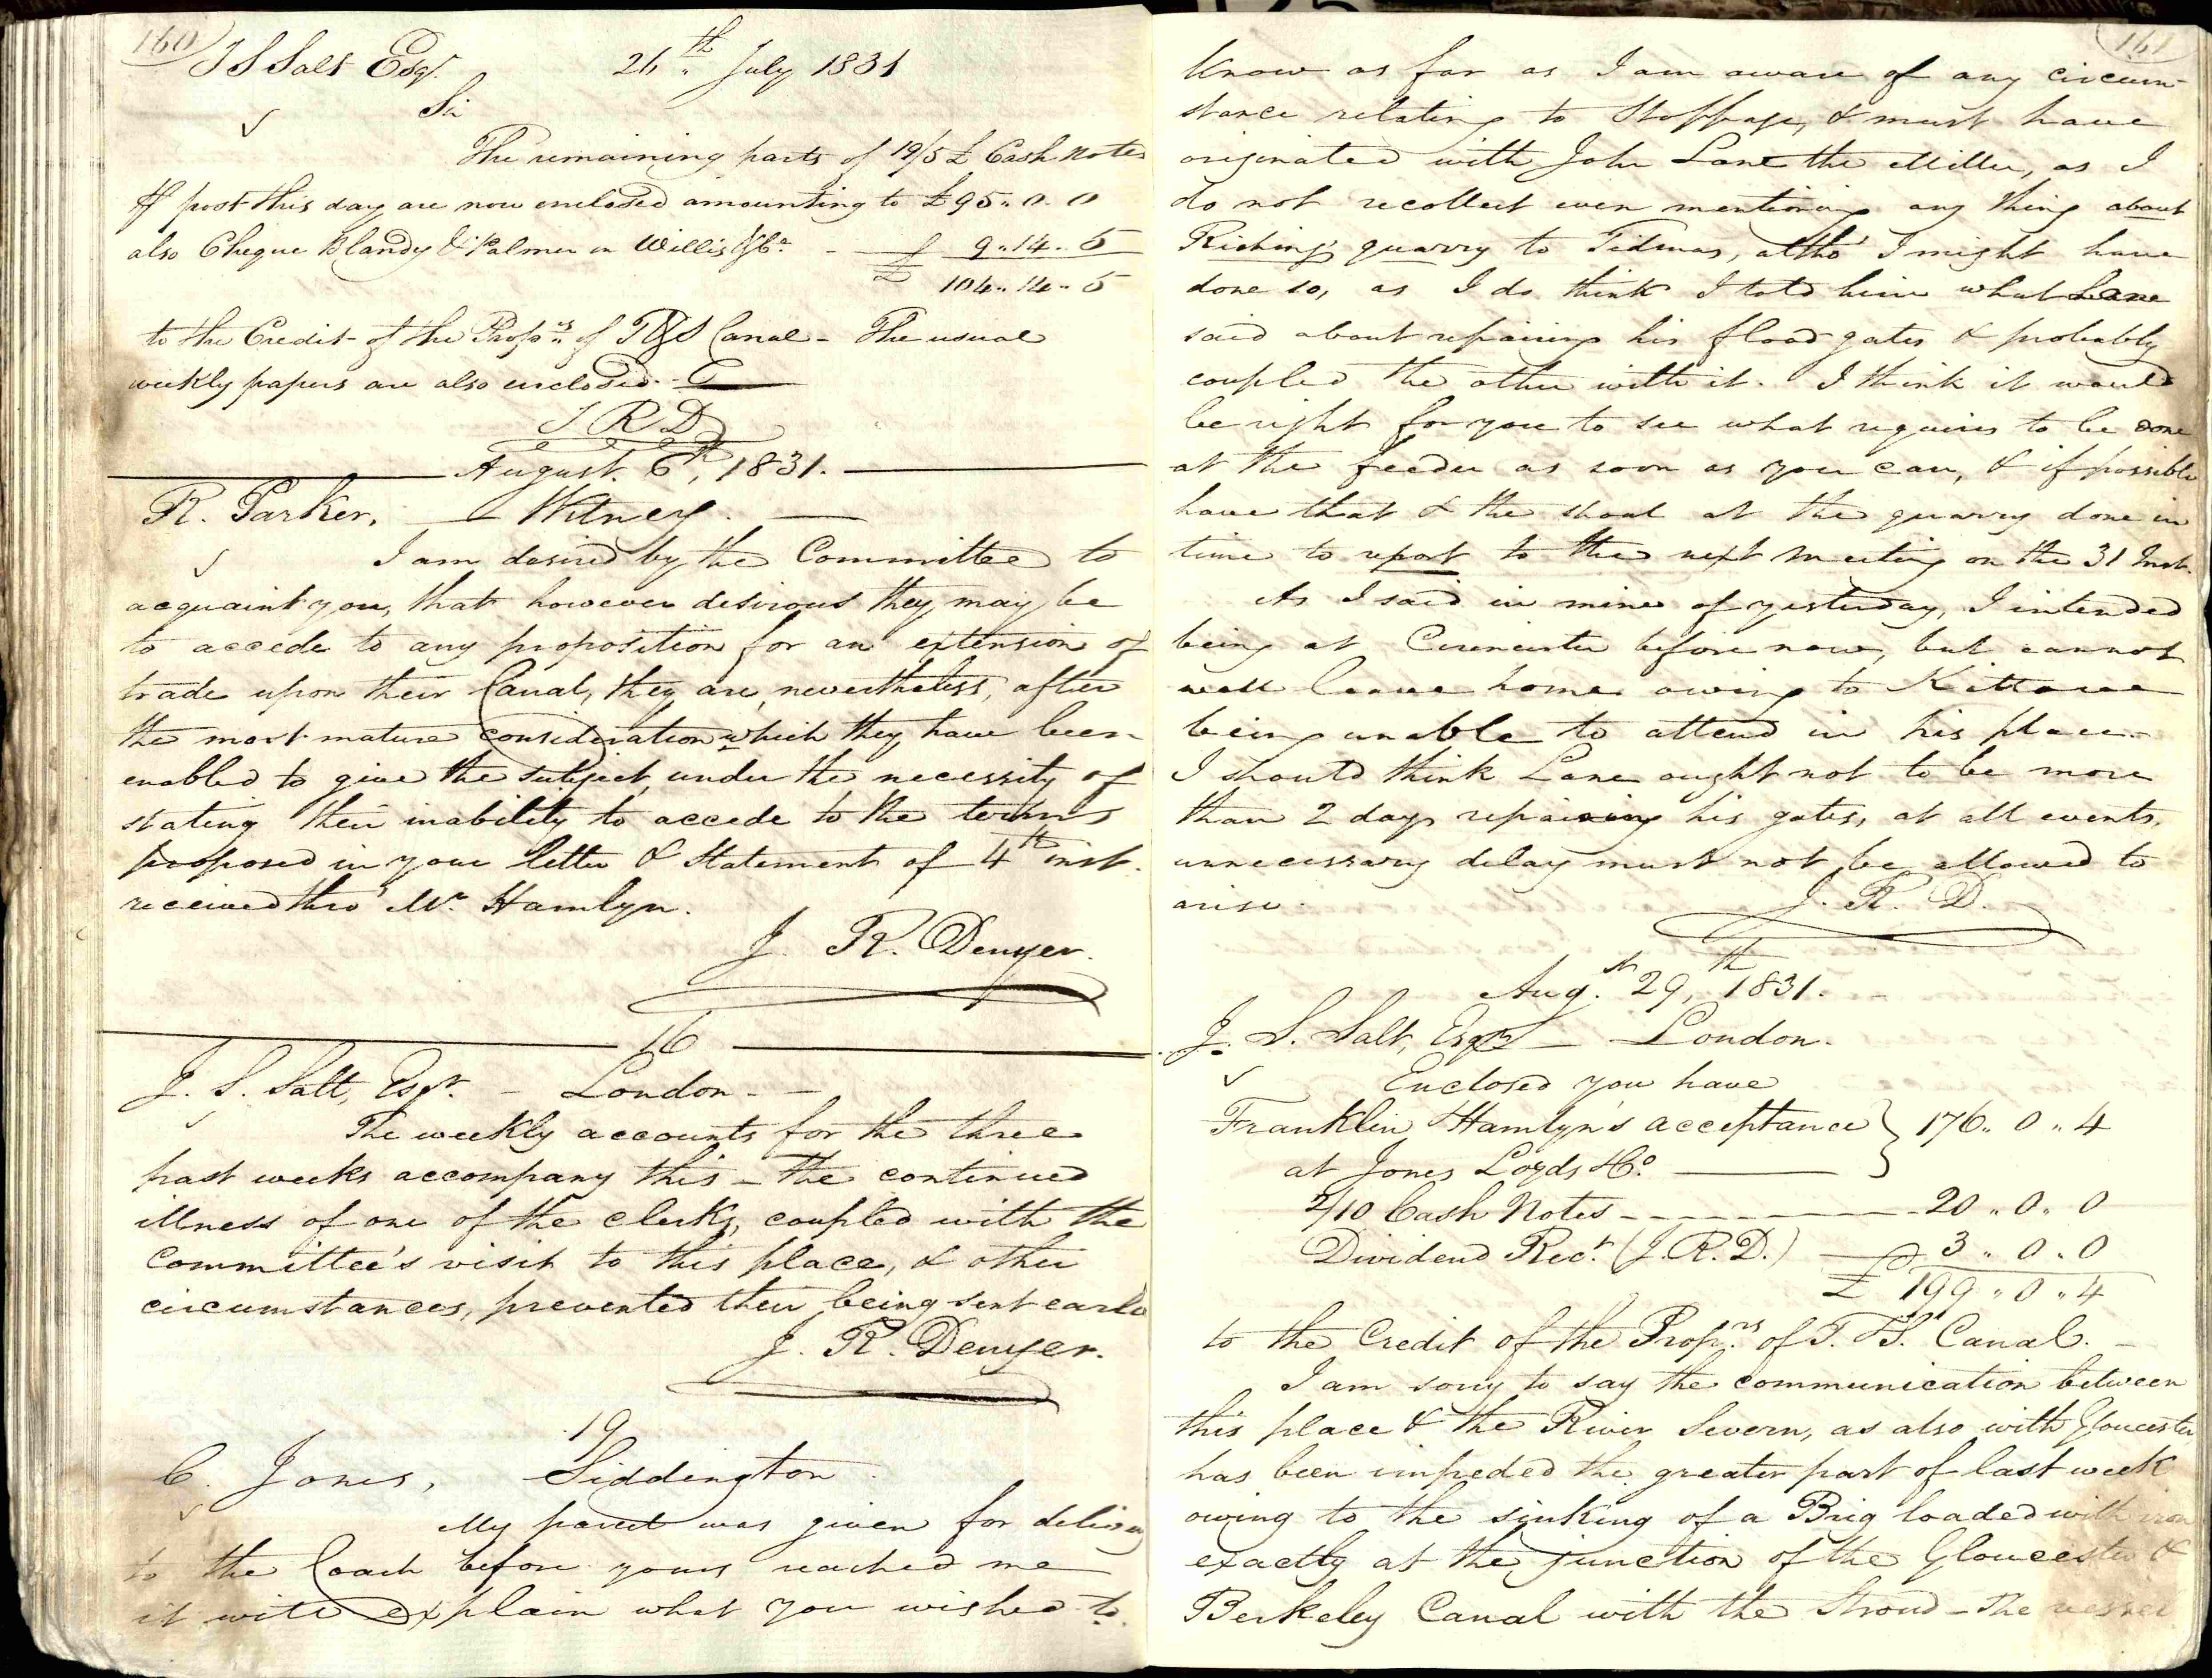 160
J S Salt Esqr. 26th July 1831
Sir
The remaining parts of 19/5 £ Cash Notes
post this day are now enclosed amounting to £95 " 0 " 0
also Cheque Blandy & Palmer on Willis & Co. - £ 9 " 14 " 5
£ 104 " 14 " 5
to the Credit of the Propers. of T & S Canal - The usual
weekly papers are also enclosed -
J R D
August 6th, 1831.
R. Parker, — Witney. —
I am desired by the Committee to
acquaint you, that however desirous they may be
to accede to any proposition for an extension of
trade upon their Canal, they are, nevertheless, after
the most mature consideration which they have been
enabled to give the subject, under the necessity of
stating their inability to accede to the terms
proposed in your letter & Statement of 4th inst.
received thro' Mr. Hamlyn.
J. R. Denyer.
16
J. S. Salt, Esqr. - London. -
The weekly accounts for the three
past weeks accompany this - the continued
illness of one of the clerks, coupled with the
Committee's visit to this place, & other
circumstances, prevented their being sent earlie
J. R. Denyer.
19
C. Jones, Siddington.
My parcel was given for delivery
to the Coach before yours reached me
it will explain what you wished to
161
know as far as I am aware of any circum-
stance relating to Stoppage, & must have
originated with John Lane the Miller, as I
do not recollect even mentioning any thing about
Riching's quarry to Tidmas, altho' I might have
done so, as I do think I told him what Lane
said about repairing his flood-gates & probably
coupled the other with it. I think it would
be right for you to see what requires to be done
at the feeder as soon as you can, & if possible
have that & the shoal at the quarry done in
time to report to the next meeting on the 31 Inst.
As I said in mine of yesterday, I intended
being at Cirencester before now, but cannot
well leave home owing to
being unable to attend in his place.
I should think Lane ought not to be more
than 2 days repairing his gates, at all events,
unnecessary delay must not be allowed to
arise.
J. R. D.
Augst. 29th, 1831.
J. S. Salt, Esqr. — London.
Enclosed you have
Franklin Hamlyn's acceptance } 176 " 0 " 4
at Jones Loyds & Co. —
2/10 Cash Notes - - - - - 20 " 0 " 0
Dividend Rect. (J. R. D.) — 3 " 0 " 0
£ 199 " 0 " 4
to the Credit of the Proprs. of T. & S. Canal. -
I am sorry to say the communication between
this place & the River Severn, as also with Gloucester,
has been impeded the greater part of last week
owing to the sinking of a Brig loaded with iron
exactly at the junction of the Gloucester &
Berkeley Canal with the Stroud - The vessel